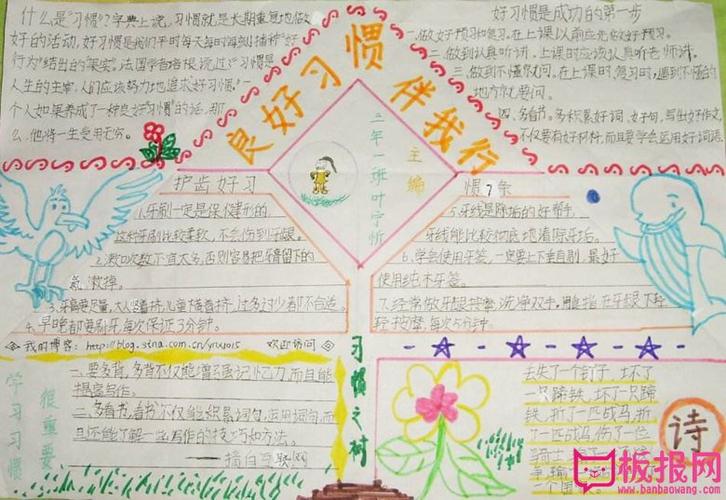 什么是"习惯"?字典上说,习惯就是长期重复地做
好的活动,好习惯是我们平时每天每时每刻播种"好
行为"结出的"果实"。法国学者培根说过:"习惯是
人生的主宰,人们应该努力地追求好习惯。"一
个人如果养成了一种良好"习惯"的话,那
么,他将一生受用无穷。
良好习惯 伴我行
好习惯是成功的第一步
一、做好预习和复习,在上课以前应先做好预习。
二、做到认真听讲,上课时应该认真听老师讲。
三、做到不懂就问,在上课时、复习时,遇到不懂的
地方就要问。
四、多背、多积累好词、好句,写出好作文,
不仅要有好材料,而且要学会运用好词语
主编
三年一班叶宇忻
护齿好习
惯7条
1.牙刷一定是保健形的
这种牙刷比较柔软,不会伤到牙龈。
2.漱口次数不宜太多,否则容易把牙膏留下的
氟漱掉。
3.牙膏要足量,大人竖着挤,儿童横着挤,过多过少都不合适。
4.早晚都要刷牙,每次保证3分钟。
5.牙线是除垢的好帮手,
牙线能比较彻底地清除牙垢。
6.学会使用牙签,一定要上下垂直剔,最好
使用纯木牙签。
7.经常做牙龈按摩,洗净双手,用食指在牙龈上
轻按摩,每次5分钟。
我们博客:http://blog.sina.com.cn/ 欢迎访问
学习习惯
很重要
一、要多背,多背不仅能增强记忆力,而且能
提高写作。
二、多背书、看书不仅能积累词句,运用词句,而
且还能了解一些写作的技巧和方法。
——摘自
习惯之树
丢失了一个钉子,坏了
一只蹄铁,坏了一只蹄
铁,折了一匹战马,折
了一匹战马,伤了一位
骑士
一个国
诗
板报网
www.banbaowang.com